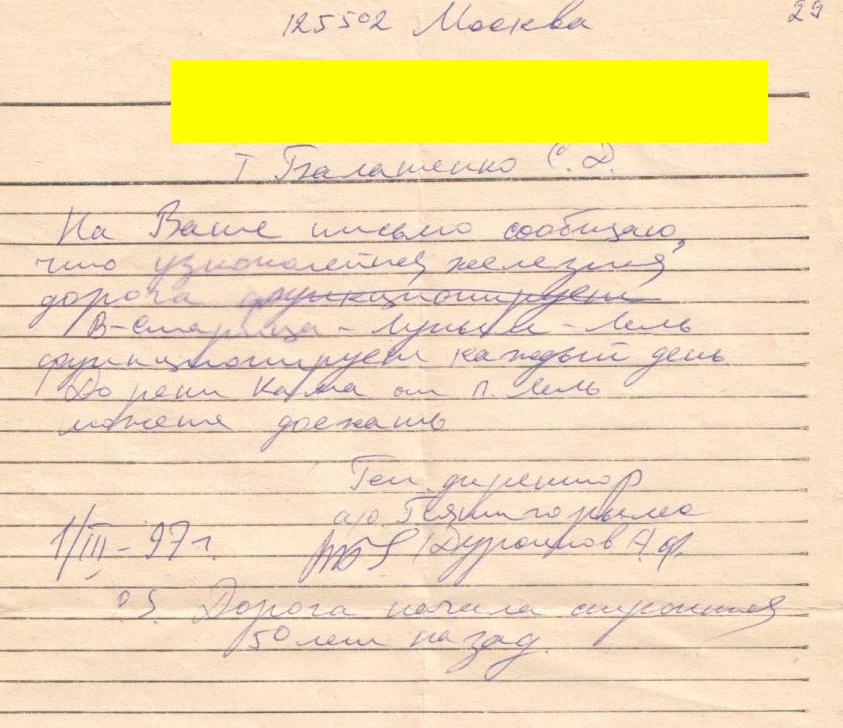 29
125502 Москва
т Балашенко С.Д.
На Ваше письмо сообщаю,
что узкоколейная железная
дорога функционирует
В-Старица - Лупья - Лель
функционирует каждый день
До реки Кама от п. Лель
можете доехать
Ген. директор
а/о
1/III - 97 г. А.Ф.
P.S. Дорога начала строится
50 лет назад.